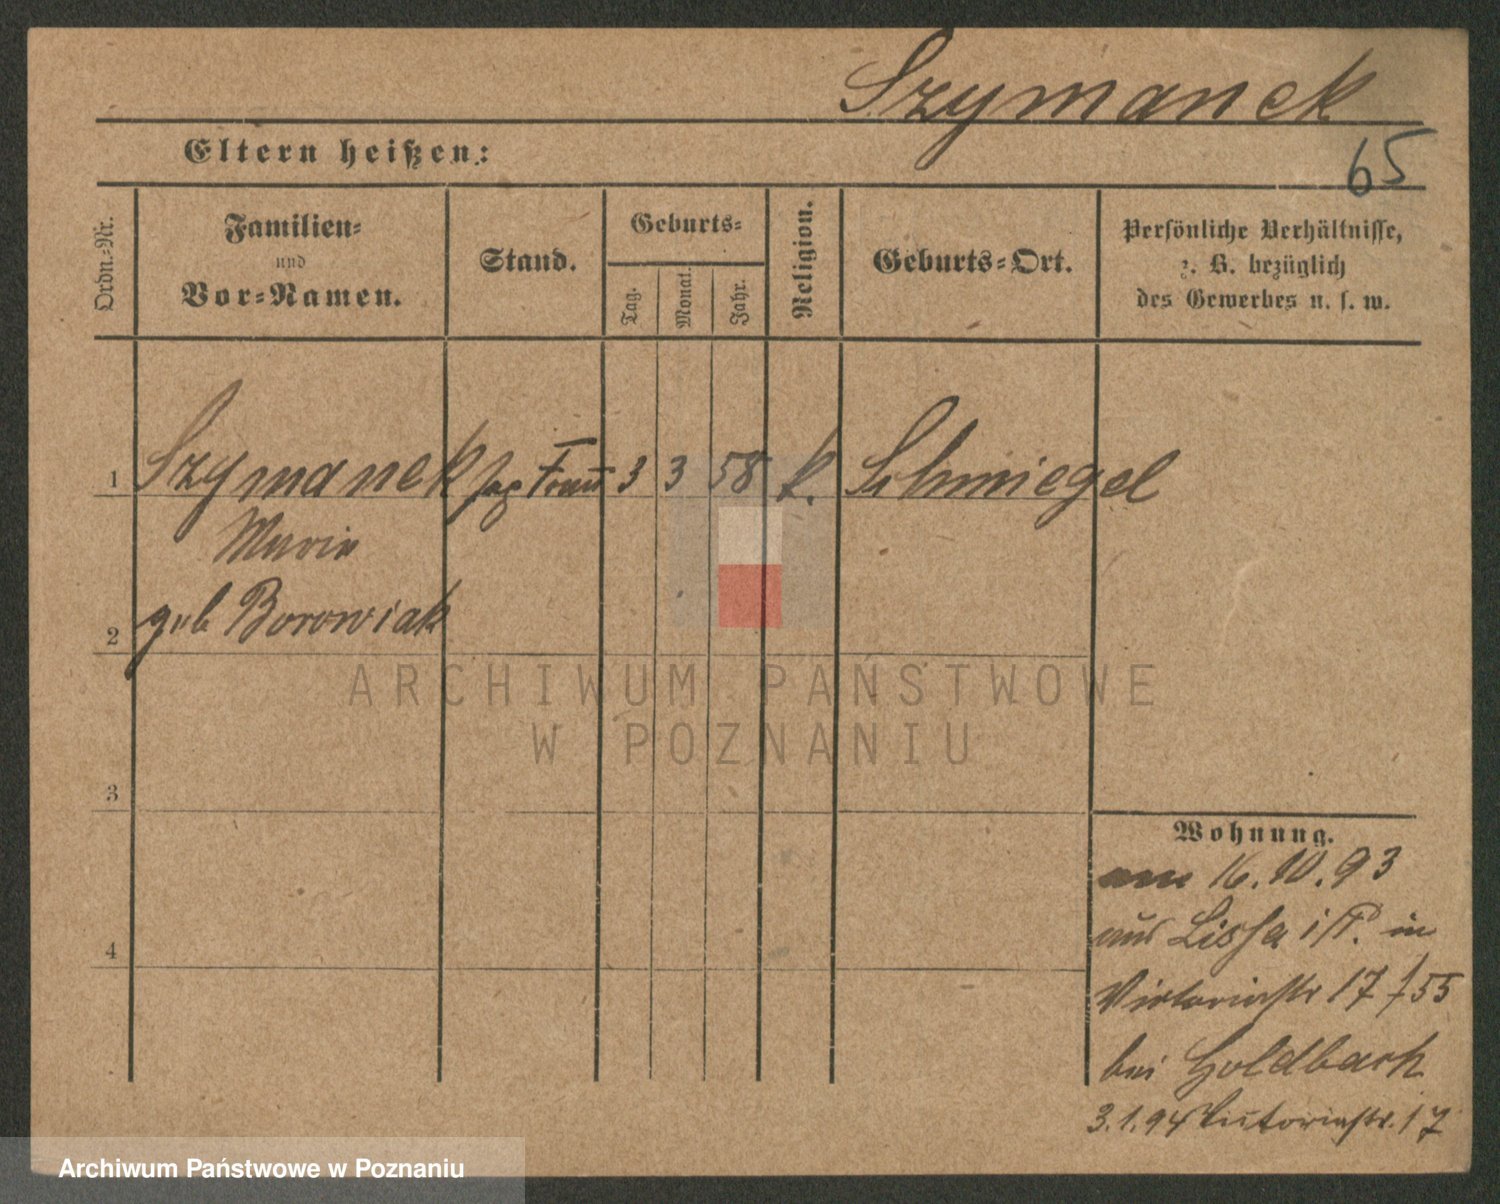 Szymanek
65
Eltern heißen:
Ordn.-Nr.
Familien-
und
Vor-Namen.
Stand.
Geburts-
Tag.
Monat.
Jahr.
Religion.
Geburts-Ort.
Persönliche Verhältnisse,
z. B. bezüglich
des Gewerbes u. s. w.
1 Szymanek Frau 3 3 58 k. Schmiegel
Maria
geb Borowiak
2
3
4
Wohnung.
am 16.10.93
aus Lissa i/P. in
Victoriastr 17 55
bei Goldbach
3.1.94 Victoriastr. 17
ARCHIWUM PAŃSTWOWE
W POZNANIU
Archiwum Państwowe w Poznaniu